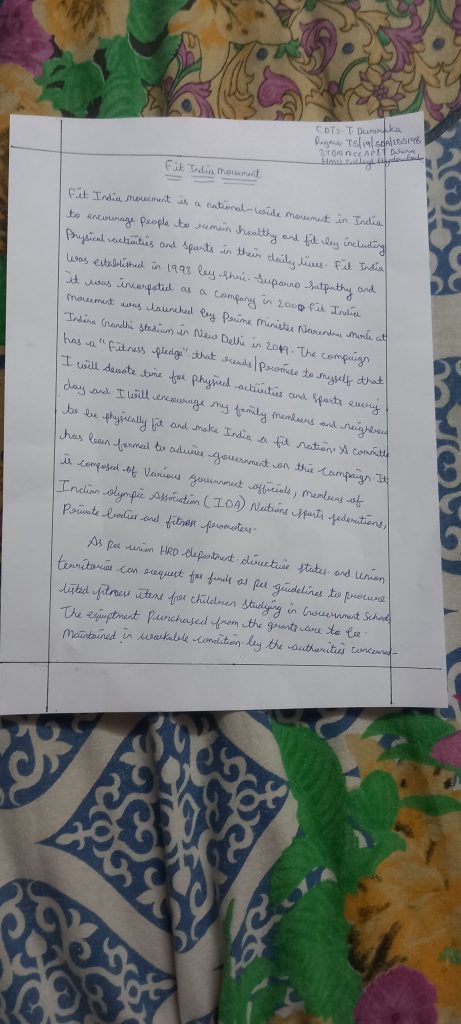 CDT:- T. Dwaraka
Regno:- TS/19/SDA/155198
3 T BN NCC
HMV College Hyderabad
Fit India Movement
Fit India movement is a national-wide movement in India
to encourage people to remain healthy and fit by including
Physical activities and sports in their daily lives. Fit India
was established in 1993 by Shri. Suparno Satpathy and
it was incorpoted as a company in 2009 Fit India
Movement was launched by Prime Minister Narendra modi at
Indira Gandhi stadium in New Delhi in 2019. The campaign
has a "Fitness pledge" that reads/Promise to myself that
I will devote time for physical activities and sports every
day and I will encourage my family members and neighbour
to be physically fit and make India a fit nation. A committe
has been formed to advice government on this Campaign. It
is composed of Various government officials, members of
Indian Olympic Association (IOA) Nations sports federitions,
Private bodies and fitness promoters.
As per union HRD department directive states and Union
territories can request for funds as per guidelines to procure
listed fitness items for children studying in Government School
The equiptment Purchased from the grants are to be
Maintained in workable condition by the authorities concerned-